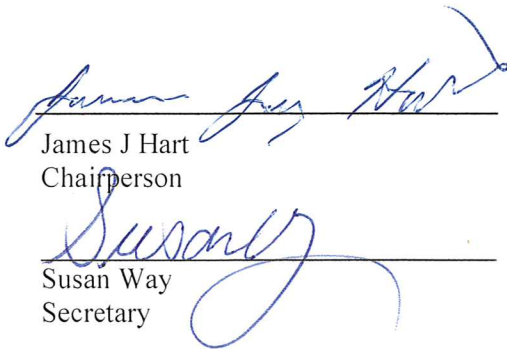 James Jay Hart
James J Hart
Chairperson
Susan Way
Susan Way
Secretary